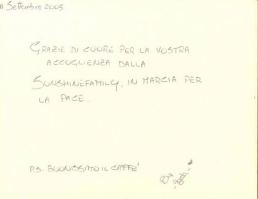 Settembre 2003
GRAZIE DI CUORE PER LA VOSTRA
ACCOGLIENZA DALLA
SUNSHINEFAMILY, IN MARCIA PER
LA PACE.
P.S. BUONISSIMO IL CAFFE'